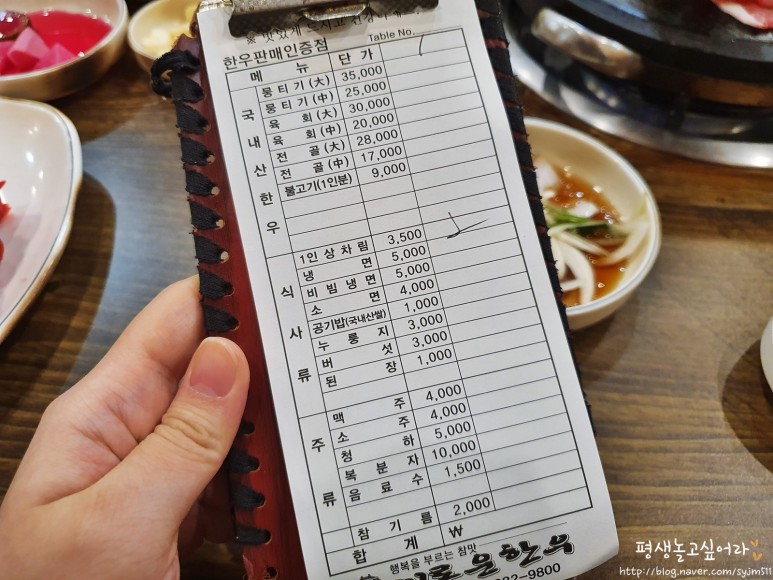 한우판매인증점
Table No.
메 뉴 단 가
국내산한우
뭉티기(大) 35,000
뭉티기(中) 25,000
육 회(大) 30,000
육 회(中) 20,000
전 골(大) 28,000
전 골(中) 17,000
불고기(1인분) 9,000
식사류
1인상차림 3,500
냉 면 5,000
비빔냉면 5,000
소 면 4,000
공기밥(국내산쌀) 1,000
누룽지 3,000
버 섯 3,000
된 장 1,000
주류
맥 주 4,000
소 주 4,000
청 하 5,000
복분자 10,000
음료수 1,500
참기름 2,000
합 계 ₩
행복을 부르는 참맛
로운한우
9800
평생놀고싶어라
http://blog.naver.com/syjm511